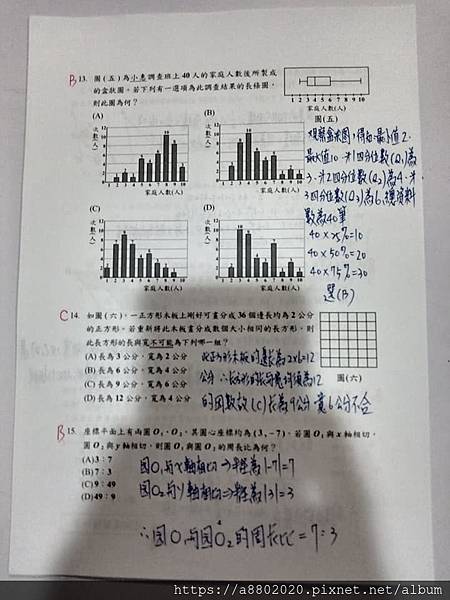 B 13. 圖(五)為小惠調查班上 40 人的家庭人數後所製成
的盒狀圖。若下列有一選項為此調查結果的長條圖,
則此圖為何?
1 2 3 4 5 6 7 8 9 10
家庭人數(人)
圖(五)
(A)
次數(人)
1 2 3 4 5 6 7 8 9 10
家庭人數(人)
(B)
次數(人)
1 2 3 4 5 6 7 8 9 10
家庭人數(人)
(C)
次數(人)
1 2 3 4 5 6 7 8 9 10
家庭人數(人)
(D)
次數(人)
1 2 3 4 5 6 7 8 9 10
家庭人數(人)
觀察盒狀圖,得知最小值2.
最大值10.第1四分位數(Q1)為
3.第2四分位數(Q2)為4.第
3四分位數(Q3)為6.總資料
數為40筆
40×25%=10
40×50%=20
40×75%=30
選(B)
C 14. 如圖(六),一正方形木板上剛好可畫分成 36 個邊長均為 2 公分
的正方形。若重新將此木板畫分成數個大小相同的長方形,則
此長方形的長與寬不可能為下列哪一組?
(A)長為 3 公分,寬為 2 公分
(B)長為 6 公分,寬為 4 公分
(C)長為 9 公分,寬為 6 公分
(D)長為 12 公分,寬為 4 公分
圖(六)
此正方形木板的邊長為2×6=12
公分 ∴長方形的長與寬均須為12
的因數故(C)長為9公分寬6公分不合
B 15. 座標平面上有兩圓 O1、O2,其圓心座標均為 (3,-7)。若圓 O1 與 x 軸相切,
圓 O2 與 y 軸相切,則圓 O1 與圓 O2 的周長比為何?
(A)3:7
(B)7:3
(C)9:49
(D)49:9
圓O1與x軸相切⇒半徑為|-7|=7
圓O2與y軸相切⇒半徑為|3|=3
∴圓O1與圓O2的周長比=7:3
https://a8802020.pixnet.net/album